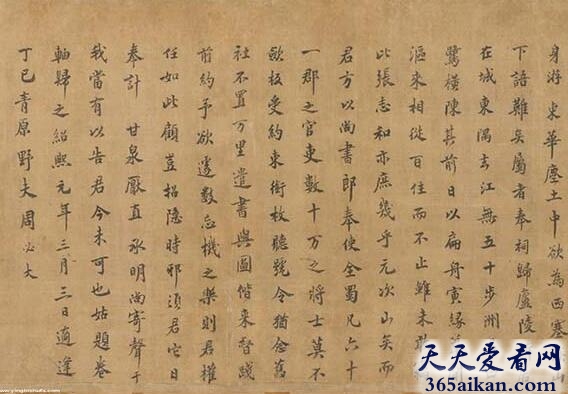 身游東華塵土中欲為西塞山
下語難矣屬者奉祠歸廬陵
在城東隅去江無五十步洲
鷺橫陳其前日以扁舟寅緣
漚來相從百住而不止雖未
此張志和亦庶幾乎元次山矣而
君方以尚書郎奉使全蜀凡六十
一郡之官吏數十万之將士莫不
歛板受約束銜枚聽號令猶念舊
社不置万里遺書與圖偕來督踐
前約予欲遽數忘機之樂則君權
任如此顧豈招隐時邪須君它日
奉計甘泉厭直承明尚寄聲于
我當有以告君今未可也姑題卷
軸歸之紹熙元年三月三日適逢
丁巳青原野夫周必大
天天爱看网
365aikan.com